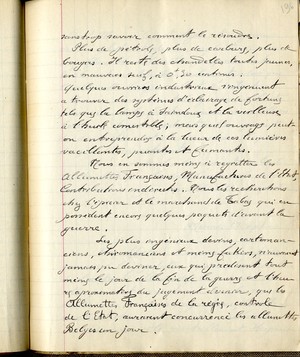 savoir comment le
Plus de pétrole, plus de carbure, plus de
bougies. Il reste des chandelles toutes
en mauvais suif, à 0,30 centimes.
Quelques ouvriers industrieux
à trouver des systèmes d'éclairage de fortune
tels que la lampe à et la veilleuse
à l'huile comestible, mais quel ouvrage peut
on entreprendre à la lueur de ces lumières
vacillantes, puantes et fumantes.
Nous en sommes même à regretter les
Allumettes Françaises, Manufactures de l'Etat,
Contributions indirectes. Nous les recherchons
chez l'épicier et le marchand de tabac qui en
possèdent encore quelques paquets d'avant la
guerre.
Les plus ingénieux devins, cartoman-
ciens, chiromanciens et même fakirs, n'auraient
jamais pu deviner, eux qui prédisent tout
même le jour de la fin de la guerre et l'heure
approximative du jugement dernier, que les
Allumettes Françaises de la régie, contrôle
de l'Etat, auraient concurrencé les allumettes
Belges un jour.